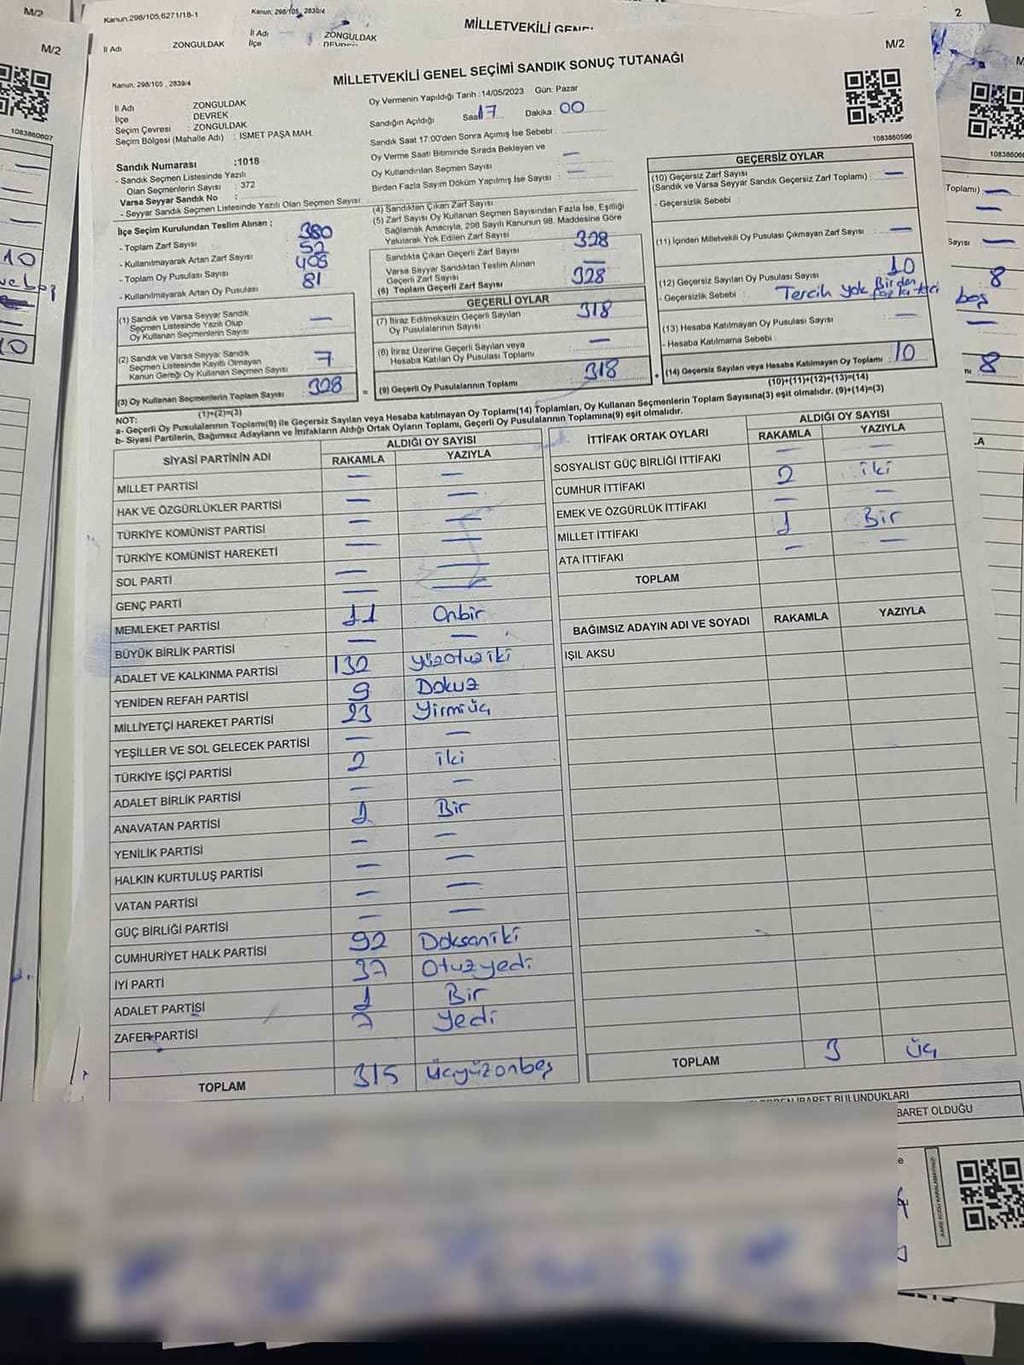 M/2
Kanun,298/105,6271/18-1
Kanun, 298/105, 2839/4
MİLLETVEKİLİ GENEL
2
İl Adı ZONGULDAK
İl Adı ZONGULDAK
İlçe DEVREK
M/2
M/2
Kanun, 298/105 , 2839/4
MİLLETVEKİLİ GENEL SEÇİMİ SANDIK SONUÇ TUTANAĞI
İl Adı : ZONGULDAK
İlçe : DEVREK
Seçim Çevresi : ZONGULDAK
Seçim Bölgesi (Mahalle Adı) : İSMET PAŞA MAH.
Oy Vermenin Yapıldığı Tarih : 14/05/2023 Gün: Pazar
Sandığın Açıldığı Saat 17 Dakika : 00
Sandık Saat 17:00'den Sonra Açılmış İse Sebebi :
Oy Verme Saati Bitiminde Sırada Bekleyen ve
Oy Kullandırılan Seçmen Sayısı : —
Birden Fazla Sayım Döküm Yapılmış İse Sayısı : —
1083860607
1083860596
Sandık Numarası :1018
- Sandık Seçmen Listesinde Yazılı
Olan Seçmenlerin Sayısı : 372
Varsa Seyyar Sandık No :
- Seyyar Sandık Seçmen Listesinde Yazılı Olan Seçmen Sayısı:
İlçe Seçim Kurulundan Teslim Alınan ;
- Toplam Zarf Sayısı : 380
- Kullanılmayarak Artan Zarf Sayısı : 52
- Toplam Oy Pusulası Sayısı : 405
- Kullanılmayarak Artan Oy Pusulası : 81
(1) Sandık ve Varsa Seyyar Sandık
Seçmen Listesinde Yazılı Olup
Oy Kullanan Seçmenlerin Sayısı —
(2) Sandık ve Varsa Seyyar Sandık
Seçmen Listesinde Kayıtlı Olmayan
Kanun Gereği Oy Kullanan Seçmen Sayısı : 7
(3) Oy Kullanan Seçmenlerin Toplam Sayısı 328
(1)+(2)=(3)
(4) Sandıktan Çıkan Zarf Sayısı
(5) Zarf Sayısı Oy Kullanan Seçmen Sayısından Fazla İse, Eşitliği
Sağlamak Amacıyla, 298 Sayılı Kanunun 98. Maddesine Göre
Yakılarak Yok Edilen Zarf Sayısı
Sandıkta Çıkan Geçerli Zarf Sayısı 328
Varsa Seyyar Sandıktan Teslim Alınan
Geçerli Zarf Sayısı —
(6) Toplam Geçerli Zarf Sayısı 328
GEÇERLİ OYLAR
(7) İtiraz Edilmeksizin Geçerli Sayılan
Oy Pusulalarının Sayısı 318
(8) İtiraz Üzerine Geçerli Sayılan veya
Hesaba Katılan Oy Pusulası Toplamı —
= (9) Geçerli Oy Pusulalarının Toplamı 318
GEÇERSİZ OYLAR
(10) Geçersiz Zarf Sayısı
(Sandık ve Varsa Seyyar Sandık Geçersiz Zarf Toplamı) : —
- Geçersizlik Sebebi :
(11) İçinden Milletvekili Oy Pusulası Çıkmayan Zarf Sayısı : —
(12) Geçersiz Sayılan Oy Pusulası Sayısı : 10
- Geçersizlik Sebebi : Tercih yok Birden
boş
(13) Hesaba Katılmayan Oy Pusulası Sayısı : —
- Hesaba Katılmama Sebebi :
+ (14) Geçersiz Sayılan veya Hesaba Katılmayan Oy Toplamı : 10
(10)+(11)+(12)+(13)=(14)
NOT:
a- Geçerli Oy Pusulalarının Toplamı(9) ile Geçersiz Sayılan veya Hesaba katılmayan Oy Toplamı(14) Toplamları, Oy Kullanan Seçmenlerin Toplam Sayısına(3) eşit olmalıdır. (9)+(14)=(3)
b- Siyasi Partilerin, Bağımsız Adayların ve İttifakların Aldığı Ortak Oyların Toplamı, Geçerli Oy Pusulalarının Toplamına(9) eşit olmalıdır.
SİYASİ PARTİNİN ADI
ALDIĞI OY SAYISI
RAKAMLA YAZIYLA
MİLLET PARTİSİ — —
HAK VE ÖZGÜRLÜKLER PARTİSİ — —
TÜRKİYE KOMÜNİST PARTİSİ — —
TÜRKİYE KOMÜNİST HAREKETİ — —
SOL PARTİ — —
GENÇ PARTİ — —
MEMLEKET PARTİSİ 11 Onbir
BÜYÜK BİRLİK PARTİSİ — —
ADALET VE KALKINMA PARTİSİ 132 yüzotuziki
YENİDEN REFAH PARTİSİ 9 Dokuz
MİLLİYETÇİ HAREKET PARTİSİ 23 Yirmiüç
YEŞİLLER VE SOL GELECEK PARTİSİ — —
TÜRKİYE İŞÇİ PARTİSİ 2 iki
ADALET BİRLİK PARTİSİ — —
ANAVATAN PARTİSİ 1 Bir
YENİLİK PARTİSİ — —
HALKIN KURTULUŞ PARTİSİ — —
VATAN PARTİSİ — —
GÜÇ BİRLİĞİ PARTİSİ — —
CUMHURİYET HALK PARTİSİ 92 Doksaniki
İYİ PARTİ 37 Otuzyedi
ADALET PARTİSİ 1 Bir
ZAFER PARTİSİ 7 Yedi
TOPLAM 315 üçyüzonbeş
İTTİFAK ORTAK OYLARI
ALDIĞI OY SAYISI
RAKAMLA YAZIYLA
SOSYALİST GÜÇ BİRLİĞİ İTTİFAKI — —
CUMHUR İTTİFAKI 2 iki
EMEK VE ÖZGÜRLÜK İTTİFAKI — —
MİLLET İTTİFAKI 1 Bir
ATA İTTİFAKI — —
TOPLAM
BAĞIMSIZ ADAYIN ADI VE SOYADI RAKAMLA YAZIYLA
IŞIL AKSU
TOPLAM 3 üç
İBARET BULUNDUKLARI
BARET OLDUĞU
Toplamı) : —
Sayısı : —
8
8
10
10